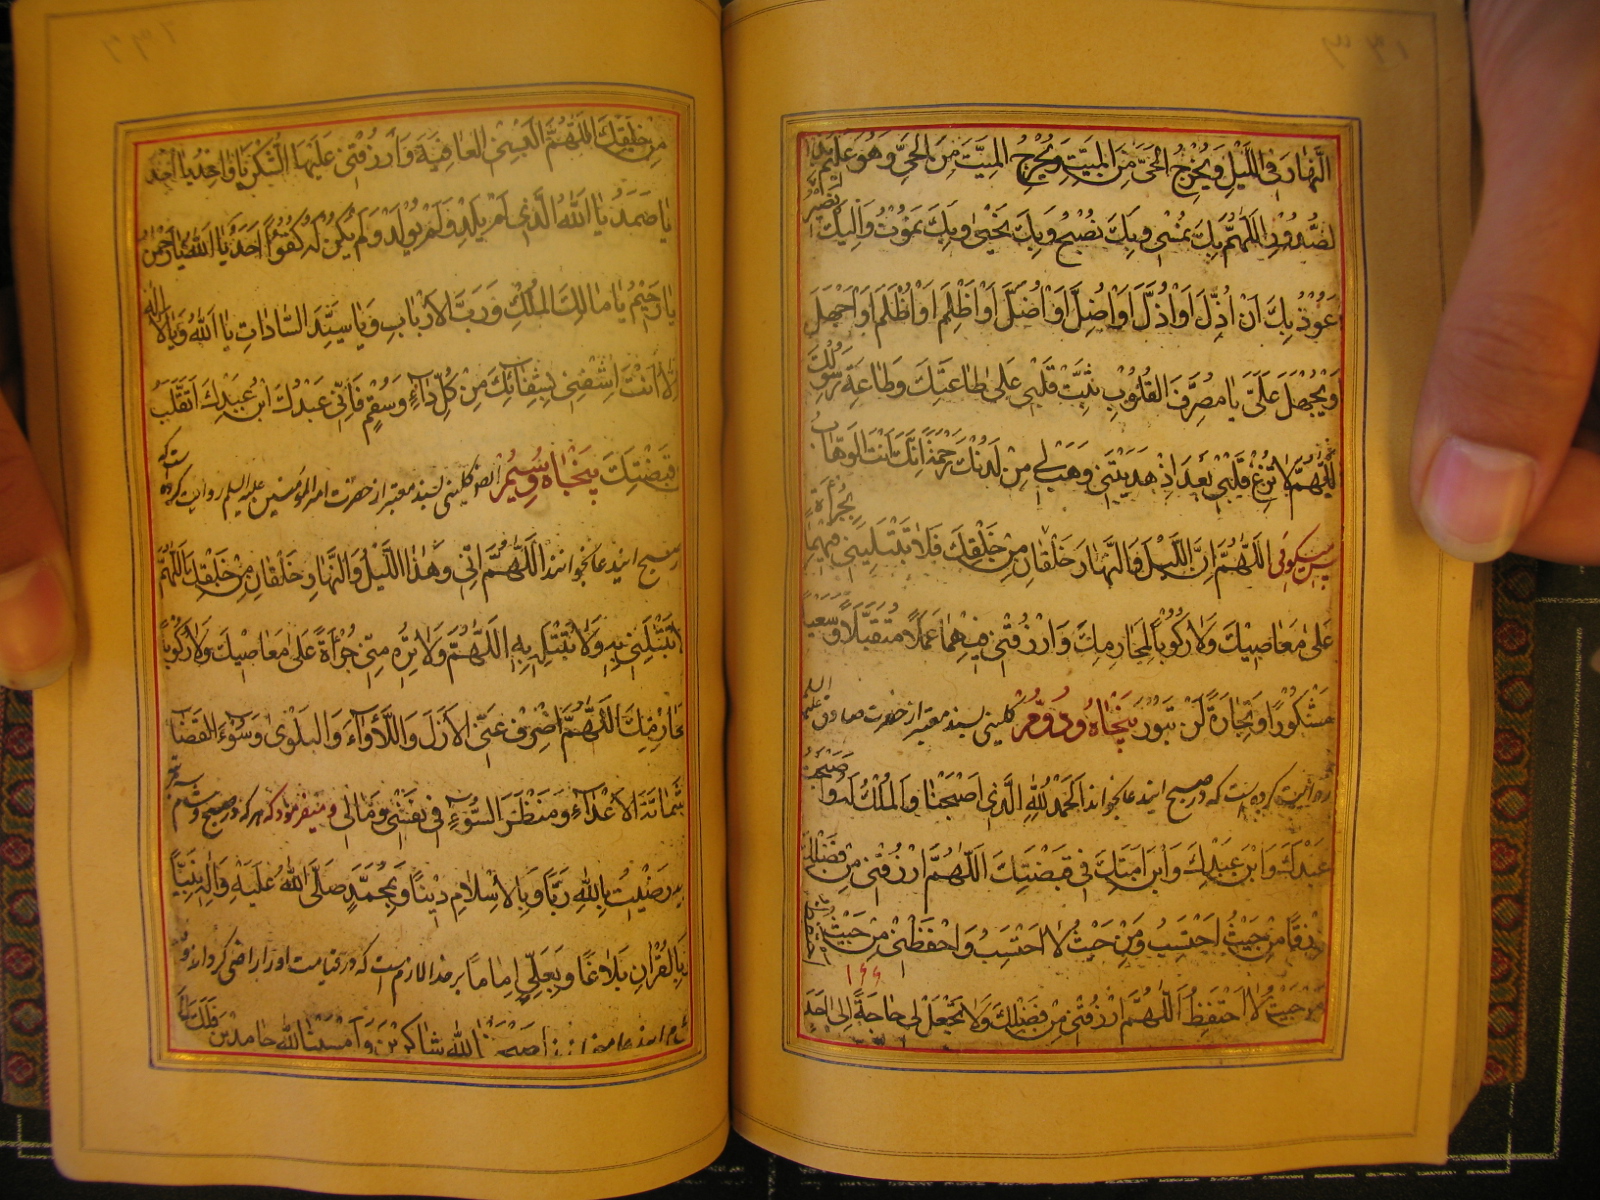 النَّهارَ فِى اللَّيْلِ وَيُخْرِجُ الحَىَّ مِنَ المَيِّتِ وَيُخْرِجُ المَيِّتَ مِنَ الحَىِّ وَهُوَ عَلِيْمٌ بِذاتِ
الصُّدُوْرِ اللّهُمَّ بِكَ نُمْسِى وَبِكَ نُصْبِحُ وَبِكَ نَحْيى وَبِكَ نَمُوْتُ وَاِلَيْكَ نَصِيْرُ
اَعُوْذُ بِكَ اَنْ اَذِلَّ اَوْ اُذِلَّ اَوْ اَضِلَّ اَوْ اُضِلَّ اَوْ اَظْلِمَ اَوْ اُظْلَمَ اَوْ اَجْهَلَ
اَوْ يُجْهَلَ عَلَىَّ يا مُصَرِّفَ القُلُوْبِ ثَبِّتْ قَلْبِى عَلى طاعَتِكَ وَطاعَةِ رَسُوْلِكَ
اَللّهُمَّ لا تُزِغْ قَلْبِى بَعْدَ اِذْ هَدَيْتَنِى وَهَبْ لِى مِنْ لَدُنْكَ رَحْمَةً اِنَّكَ اَنْتَ الوَهّابُ
پس بگوئى اَللّهُمَّ اِنَّ اللَّيْلَ وَالنَّهارَ خَلْقانِ مِنْ خَلْقِكَ فَلا تَبْتَلِيَنِّى فِيْهِما بِجُرْأَةٍ
عَلى مَعاصِيْكَ وَلا رُكُوْبٍ لِمَحارِمِكَ وَارْزُقْنِى فِيْهِما عَمَلًا مُتَقَبَّلًا وَسَعْيًا
مَشْكُوْرًا وَتِجارَةً لَنْ تَبُوْرَ پنجاه و دوّم كلينى بسند معتبر از حضرت صادق عليه السلم
روايت كرده است كه در صبح ايندعا بخواند اَلحَمْدُ لِلّهِ الَّذِى اَصْبَحْنا وَالمُلْكُ لَهُ وَاَصْبَحْتُ
عَبْدَكَ وَابْنَ عَبْدِكَ وَابْنَ اَمَتِكَ فِى قَبْضَتِكَ اَللّهُمَّ ارْزُقْنِى مِنْ فَضْلِكَ
رِزْقًا مِنْ حَيْثُ اَحْتَسِبُ وَمِنْ حَيْثُ لا اَحْتَسِبُ وَاحْفَظْنِى مِنْ حَيْثُ
حَيْثُ لا اَحْتَفِظُ اَللّهُمَّ ارْزُقْنِى مِنْ فَضْلِكَ وَلا تَجْعَلْ لِى حاجَةً اِلى اَحَدٍ
مِنْ خَلْقِكَ اَللّهُمَّ اَلْبِسْنِى العافِيَةَ وَارْزُقْنِى عَلَيْهَا الشُّكْرَ يا واحِدُ يا اَحَدُ
يا صَمَدُ يا اَللهُ الَّذِى لَمْ يَلِدْ وَلَمْ يُوْلَدْ وَلَمْ يَكُنْ لَهُ كُفُوًا اَحَدٌ يا اَللهُ يا رَحْمنُ
يا رَحِيْمُ يا مالِكَ المُلْكِ وَرَبَّ الاَرْبابِ وَيا سَيِّدَ السّاداتِ يا اَللهُ وَيا لا اِلهَ
اِلّا اَنْتَ اشْفِنِى بِشِفآئِكَ مِنْ كُلِّ دآءٍ وَسُقْمٍ فَاِنِّى عَبْدُكَ ابْنُ عَبْدِكَ اَتَقَلَّبُ
قَبْضَتِكَ پنجاه و سيّم ايضا كلينى بسند معتبر از حضرت امير المؤمنين عليه السلم روايت كرده است كه
صبح ايندعا بخواند اَللّهُمَّ اِنِّى وَهذَا اللَّيْلَ وَالنَّهارَ خَلْقانِ مِنْ خَلْقِكَ اَللّهُمَّ
لا تَبْتَلِنِى بِهِ وَلا تَبْتَلِهِ بِى اَللّهُمَّ وَلا تُرِهِ مِنِّى جُرْأَةً عَلى مَعاصِيْكَ وَلا رُكُوْبًا
لِمَحارِمِكَ اَللّهُمَّ اصْرِفْ عَنِّى الاَزَلَ وَاللَّأْواءَ وَالبَلْوى وَسُوْءَ القَضآءِ
وَشَماتَةَ الاَعْدآءِ وَمَنْظَرَ السُّوْءِ فِى نَفْسِى وَمالِى و ميفرمود كه هر كه در صبح و شام
رَضِيْتُ بِاللهِ رَبًّا وَبِالاِسْلامِ دِيْنًا وَبِمُحَمَّدٍ صَلَّى اللهُ عَلَيْهِ وَآلِهِ نَبِيًّا
وَبِالقُرْآنِ بَلاغًا وَبِعَلِىٍّ اِمامًا بر خدا لازم است كه در قيامت او را راضى گرداند و
اَصْبَحْنا لِلّهِ شاكِرِيْنَ وَاَمْسَيْنا لِلّهِ حامِدِيْنَ فَلَكَ